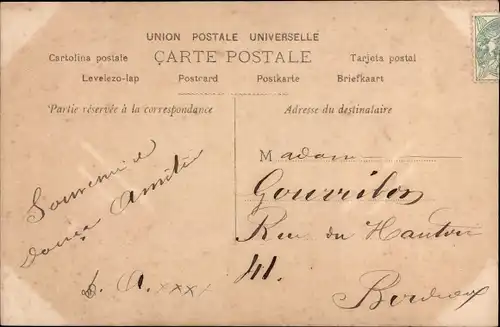 UNION POSTALE UNIVERSELLE
CARTE POSTALE
Cartolina postale
Tarjeta postal
Levelezo-lap
Postcard
Postkarte
Briefkaart
Partie réservée à la correspondance
Adresse du destinataire
Souvenir &
douça Amitié
A. xxxx
Madame
Rue du
41.
Bordeaux